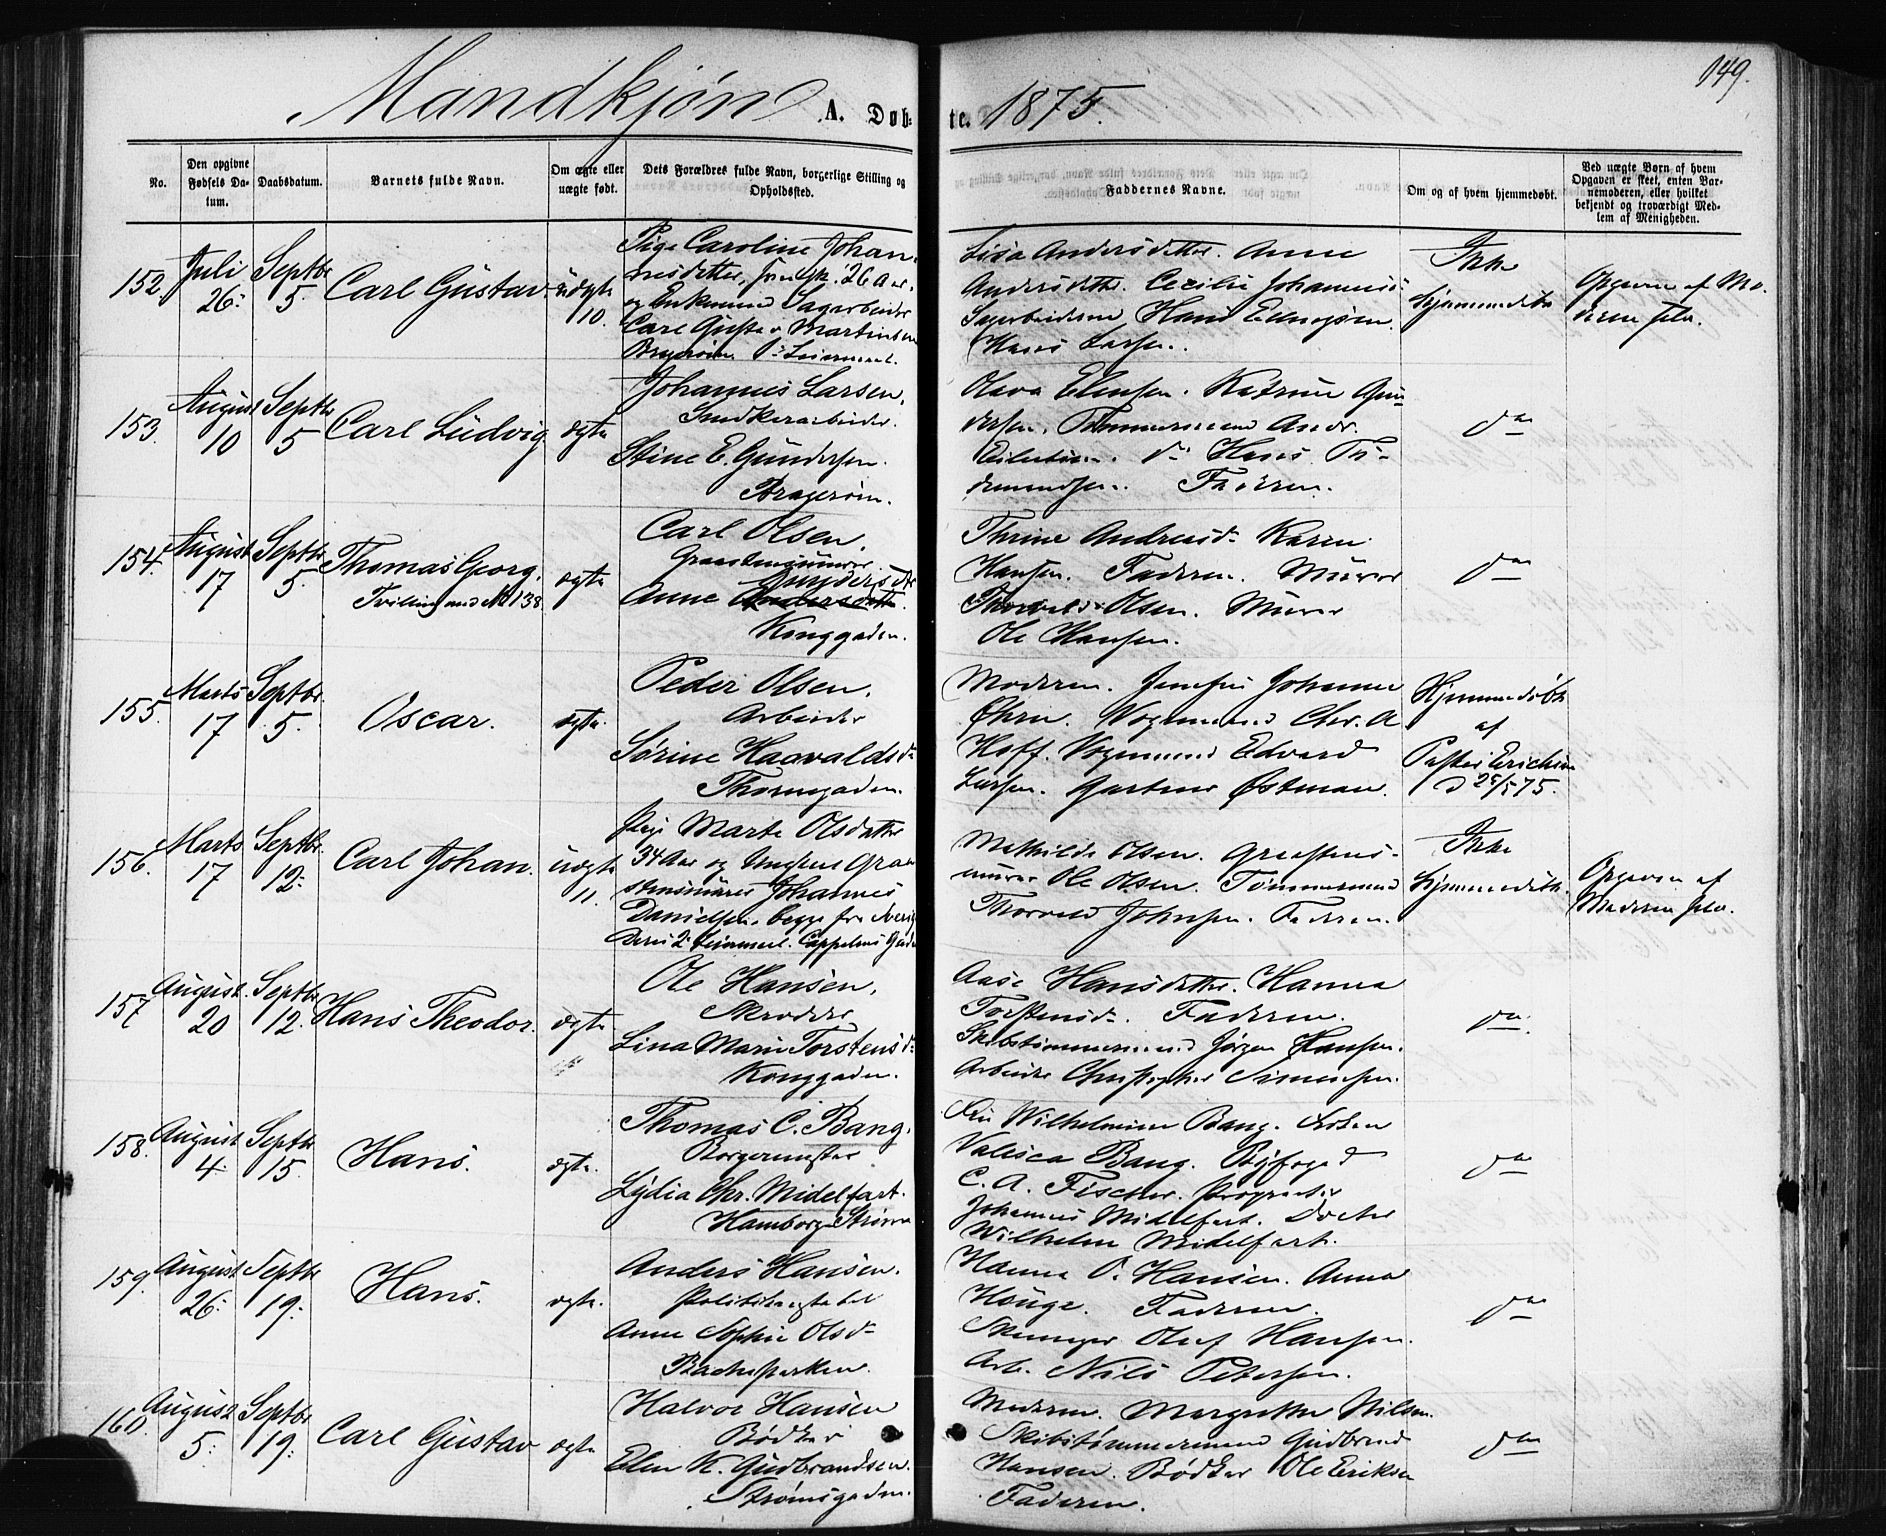 149.
Mandkjøn A. Døb- te. 1875.
No.
Den opgivne Fødsels Da- tum.
Daabsdatum.
Barnets fulde Navn.
Om ægte eller uægte født.
Dets Forældres fulde Navn, borgerlige Stilling og Opholdssted.
Faddernes Navne.
Om og af hvem hjemmedøbt.
Ved uægte Børn af hvem Opgaven er skeet, enten Bar- nemoderen, eller hvilket bekjendt og troværdigt Med- lem af Menigheden.
152. Juli 26. Septbr 5. Carl Gustav. uægte 10.
Pige Caroline Johan-
nesdatter, 26 Aar,
og Enkemand Sagarbeider
Carl Gustav Martinsen
Lisa Andersdatter. Anne
Andersdttr. Cecilie Johannes
Sagarbeiderne Hans
Hans Larsen.
Ikke
hjemmedøbt
Opgaven af Mo-
deren selv.
153. August 10 Septbr 5 Carl Ludvig ægte
Johannes Larsen,
Snedkerarbeider.
Stine E. Gundersen.
Bragerøen.
Olava Ellensen. Katrine Gun-
dersen. Tømmermand Andr.
Eilertsen. do Hans Ti-
demandsen. Faderen.
do
154. August 17 Septbr 5. Thomas Georg. ægte
Tvilling med No 138
Carl Olsen.
Graastensmurer.
Gundersdtr
Anne Andersdatter.
Konggaden.
Thrine Andreasdr Karen
Hansen. Faderen. Murer
Thorvald Olsen. Murer
Ole Hansen.
do
155. Marts 17 Septbr. 5. Oscar. ægte.
Peder Olsen.
Arbeider
Sørine Haavaldsdr
Thornegaden.
Moderen. Josefine Johanne
Øhrn. Vognmand Chr. A
Hoff. Vognmand Edvard
Larsen. Gartner Østman.
Hjemmedøbt
af
Pastor Erichsen
d 25/5 75.
156. Marts 17 Septbr. 12. Carl Johan. uægte 11.
Pige Marte Olsdatter
34 Aar og Ungkarl Graa-
stensmurer Johannes
Danielsen, begge fra Sverig
Deres 2 Leiermaal. Cappelens Gade
Mathilde Olsen. Graastens-
murer Ole Olsen. Tømmermand
Thorvald Johnsen. Faderen.
Ikke
hjemmedøbt.
Opgaven af
Moderen selv.
157 August. 20 Septbr 12. Hans Theodor. ægte
Ole Hansen.
Skredder
Lina Marie Torstensdr
Konggaden.
Aase Hansdatter. Hanna
Torstensdr. Faderen.
Skibstømmermand Jørgen Hansen.
Arbeider Christopher Simensen.
do.
158. August 4. Septbr 15. Hans. ægte.
Thomas C. Bang.
Borgermester
Lydia Chr. Midelfart.
Hamborg Strømsø
Fru Wilhelmine Bang. Frøken
Valesca Bang. Byfoged
C. A. Fischer.
Johannes Midelfart. Doctor
Wilhelm Midelfart.
do
159. August 26. Septbr 19. Hans. ægte.
Anders Hansen.
Politibetjent
Anne Sophie Olsdr
Hanna O. Hansen. Anna
Houge. Faderen.
Olaf Hansen.
Arb. Nils Petersen.
do
160. August 5. Septbr 19. Carl Gustav ægte
Halvor Hansen
Bødker
Elen K. Gudbrandsen.
Strømsgaden.
Moderen. Margrethe Nilsen.
Skibstømmermand Gudbrand
Hansen. Bødker Ole Eriksen
Faderen.
do